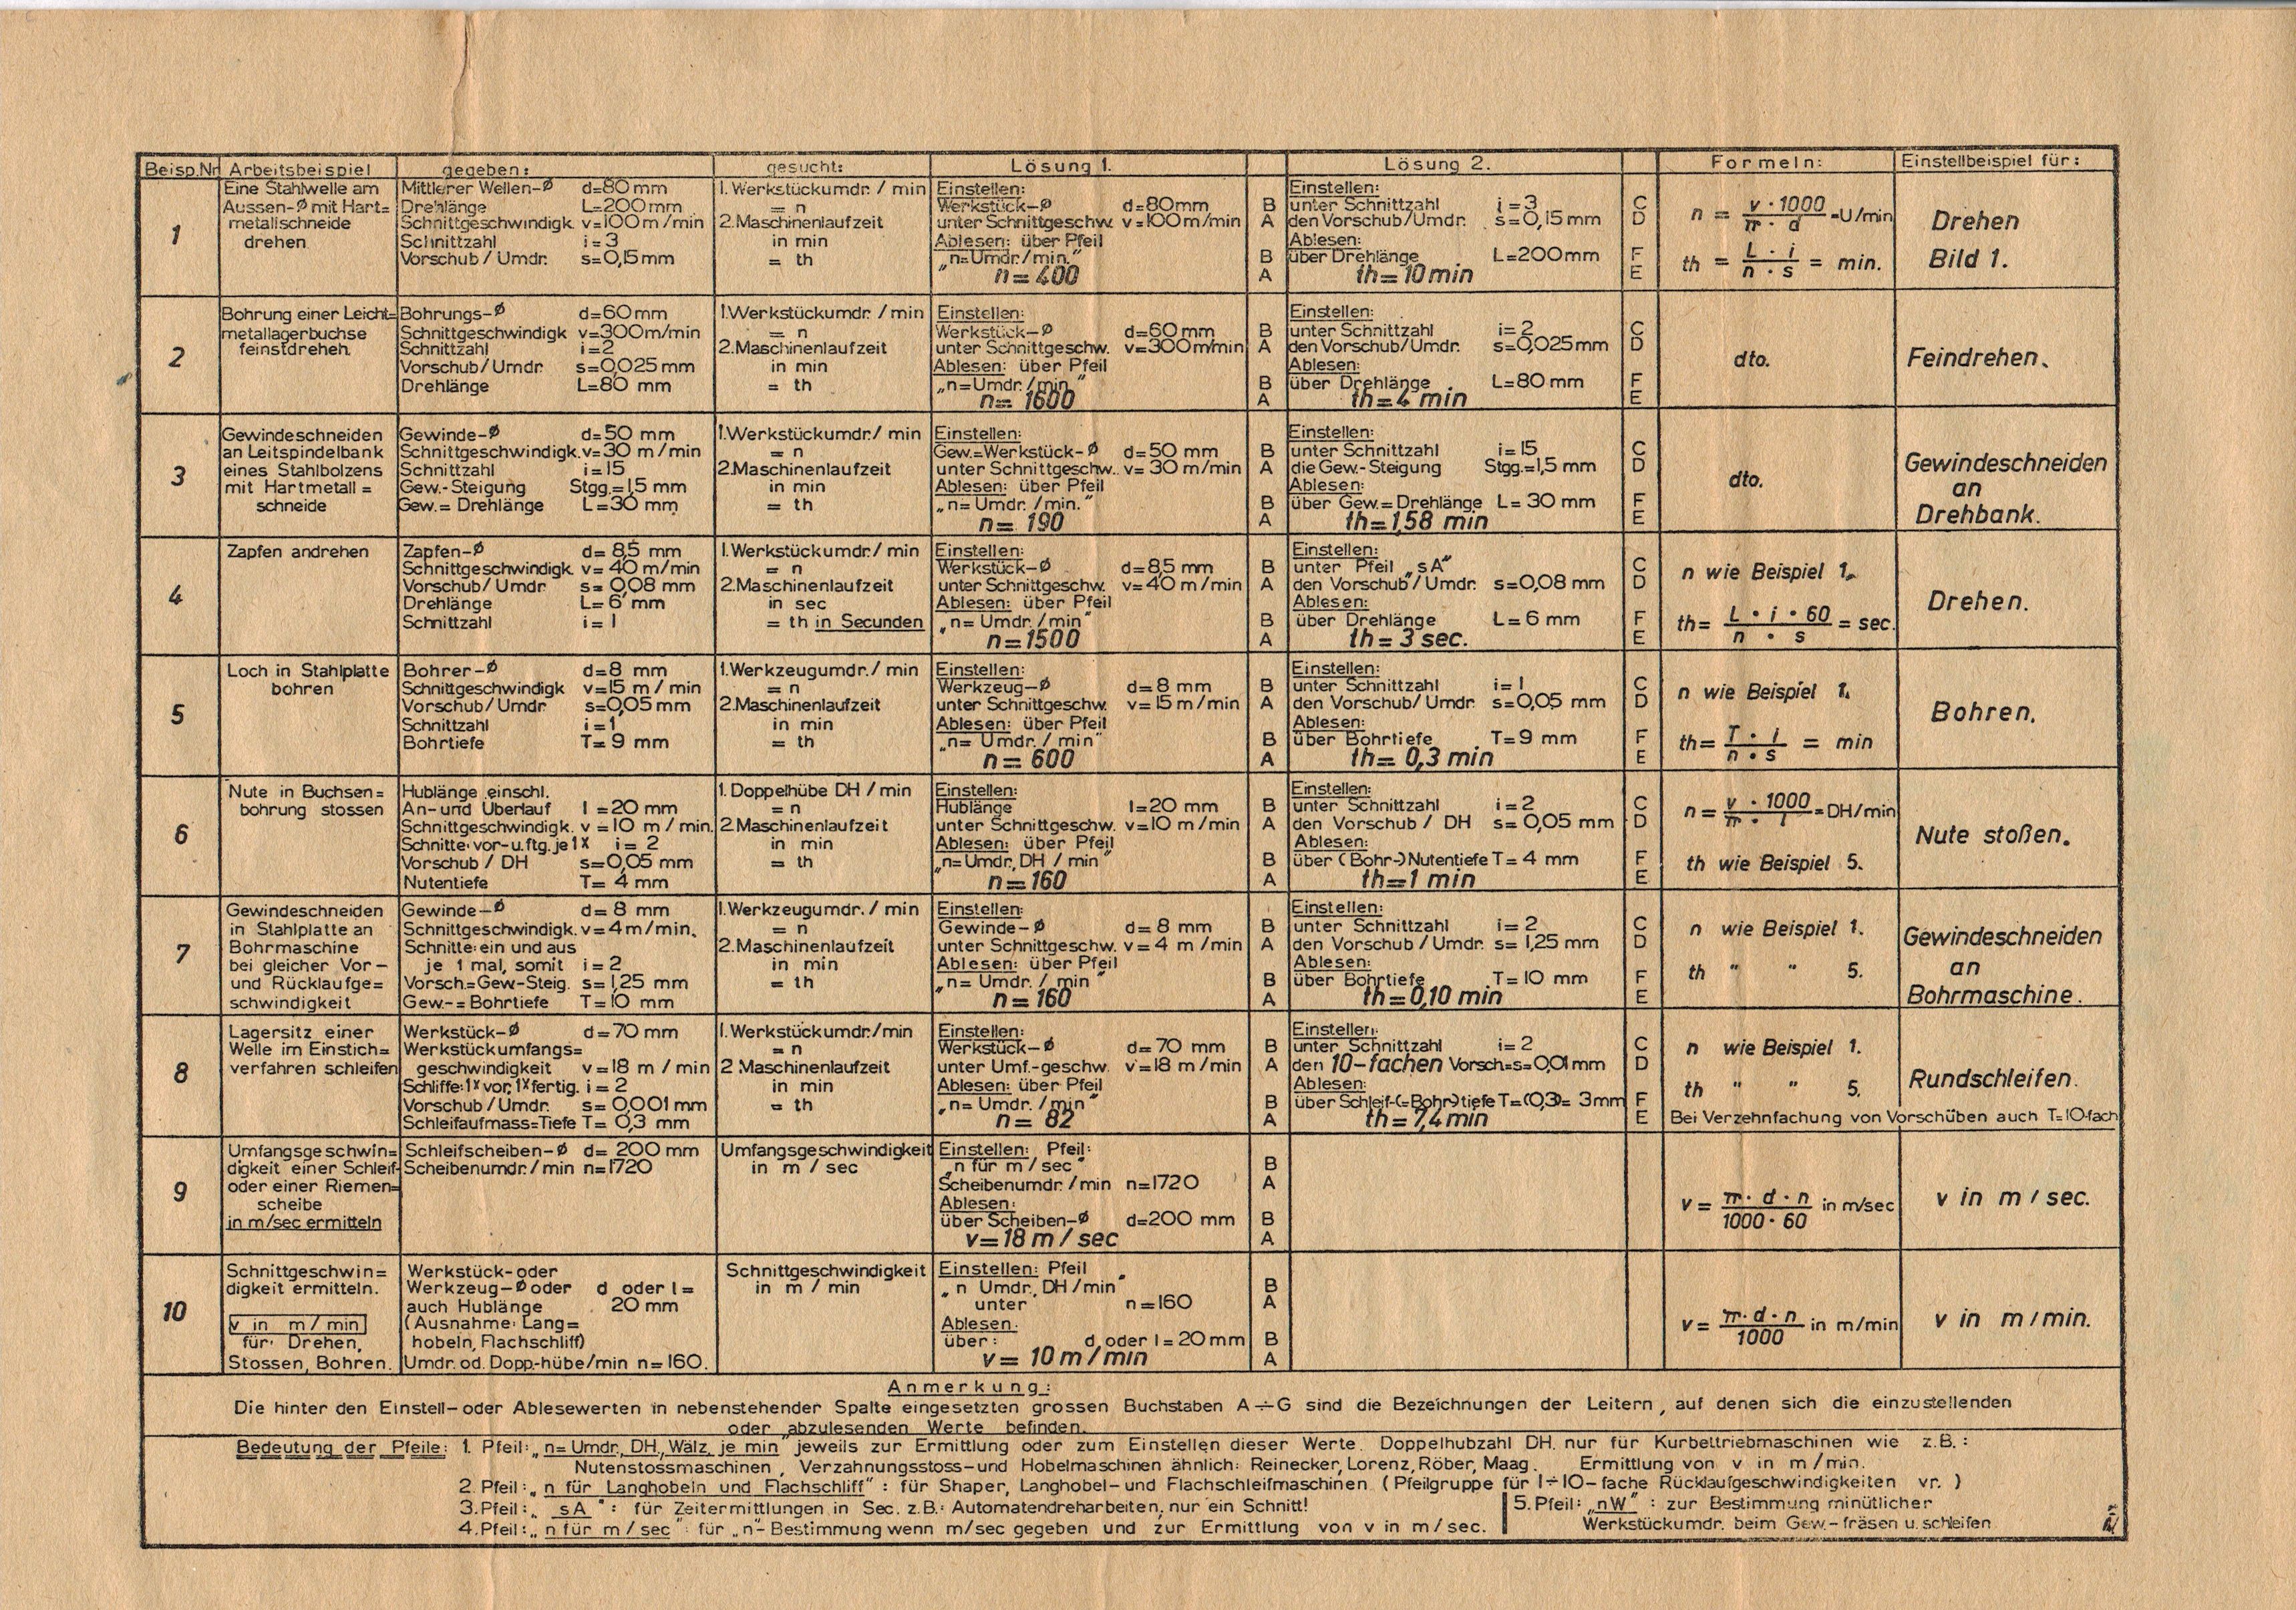 Beisp.Nr Arbeitsbeispiel gegeben: gesucht: Lösung 1. Lösung 2. Formeln: Einstellbeispiel für:
1
Eine Stahlwelle am
Aussen-Ø mit Hart=
metallschneide
drehen
Mittlerer Wellen-Ø d=80 mm
Drehlänge L=200 mm
Schnittgeschwindigk. v=100 m/min
Schnittzahl i=3
Vorschub/Umdr. s=0,15 mm
1. Werkstückumdr. / min
= n
2. Maschinenlaufzeit
in min
= th
Einstellen:
Werkstück-Ø d=80mm B
unter Schnittgeschw. v=100 m/min A
Ablesen: über Pfeil
„n=Umdr./min." B
n=400 A
Einstellen:
unter Schnittzahl i=3 C
den Vorschub/Umdr. s=0,15 mm D
Ablesen:
über Drehlänge L=200mm F
th=10 min E
n = v · 1000 / π · d =U/min
th = L · i / n · s = min.
Drehen
Bild 1.
2
Bohrung einer Leicht=
metallagerbuchse
feinstdrehen.
Bohrungs-Ø d=60 mm
Schnittgeschwindigk v=300m/min
Schnittzahl i=2
Vorschub/Umdr. s=0,025 mm
Drehlänge L=80 mm
1.Werkstückumdr. / min
= n
2.Maschinenlaufzeit
in min
= th
Einstellen:
Werkstück-Ø d=60 mm B
unter Schnittgeschw. v=300m/min A
Ablesen: über Pfeil
„n=Umdr./min." B
n= 1600 A
Einstellen:
unter Schnittzahl i=2 C
den Vorschub/Umdr. s=0,025mm D
Ablesen:
über Drehlänge L=80 mm F
th=4 min E
dto.
Feindrehen.
3
Gewindeschneiden
an Leitspindelbank
eines Stahlbolzens
mit Hartmetall=
schneide
Gewinde-Ø d=50 mm
Schnittgeschwindigk. v=30 m/min
Schnittzahl i=15
Gew.-Steigung Stgg.=1,5 mm
Gew.= Drehlänge L=30 mm
1.Werkstückumdr./ min
= n
2.Maschinenlaufzeit
in min
= th
Einstellen:
Gew.=Werkstück-Ø d=50 mm B
unter Schnittgeschw.. v= 30 m/min A
Ablesen: über Pfeil
„n= Umdr. /min." B
n= 190 A
Einstellen:
unter Schnittzahl i=15 C
die Gew.-Steigung Stgg.=1,5 mm D
Ablesen:
über Gew.=Drehlänge L= 30 mm F
th=1,58 min E
dto.
Gewindeschneiden
an
Drehbank.
4
Zapfen andrehen
Zapfen-Ø d= 8,5 mm
Schnittgeschwindigk. v= 40 m/min
Vorschub/Umdr. s= 0,08 mm
Drehlänge L= 6 mm
Schnittzahl i= 1
1.Werkstückumdr./ min
= n
2.Maschinenlaufzeit
in sec
= th in Secunden
Einstellen:
Werkstück-Ø d=8,5 mm B
unter Schnittgeschw. v=40 m/min A
Ablesen: über Pfeil
„n= Umdr./min" B
n=1500 A
Einstellen:
unter Pfeil „sA" C
den Vorschub/Umdr. s=0,08 mm D
Ablesen:
über Drehlänge L= 6 mm F
th= 3 sec. E
n wie Beispiel 1.
th= L · i · 60 / n · s = sec.
Drehen.
5
Loch in Stahlplatte
bohren
Bohrer-Ø d=8 mm
Schnittgeschwindigk v=15 m / min
Vorschub/Umdr. s=0,05 mm
Schnittzahl i=1
Bohrtiefe T= 9 mm
1.Werkzeugumdr./ min
= n
2.Maschinenlaufzeit
in min
= th
Einstellen:
Werkzeug-Ø d=8 mm B
unter Schnittgeschw. v=15 m/min A
Ablesen: über Pfeil
„n= Umdr. / min" B
n= 600 A
Einstellen:
unter Schnittzahl i=1 C
den Vorschub/Umdr. s=0,05 mm D
Ablesen:
über Bohrtiefe T=9 mm F
th= 0,3 min E
n wie Beispiel 1.
th= T · i / n · s = min
Bohren.
6
Nute in Buchsen=
bohrung stossen
Hublänge einschl.
An- und Überlauf l=20 mm
Schnittgeschwindigk. v=10 m / min.
Schnitte: vor-u.ftg.je 1x i= 2
Vorschub / DH s=0,05 mm
Nutentiefe T= 4 mm
1. Doppelhübe DH / min
= n
2.Maschinenlaufzeit
in min
= th
Einstellen:
Hublänge l=20 mm B
unter Schnittgeschw. v=10 m/min A
Ablesen: über Pfeil
„n=Umdr., DH / min" B
n=160 A
Einstellen:
unter Schnittzahl i=2 C
den Vorschub / DH s= 0,05 mm D
Ablesen:
über (Bohr-)Nutentiefe T= 4 mm F
th=1 min E
n= v · 1000 / π · l =DH/min
th wie Beispiel 5.
Nute stoßen.
7
Gewindeschneiden
in Stahlplatte an
Bohrmaschine
bei gleicher Vor-
und Rücklaufge=
schwindigkeit
Gewinde-Ø d= 8 mm
Schnittgeschwindigk. v=4m/min.
Schnitte: ein und aus
je 1 mal, somit i=2
Vorsch.=Gew-Steig. s=1,25 mm
Gew.-=Bohrtiefe T=10 mm
1.Werkzeugumdr. / min
= n
2.Maschinenlaufzeit
in min
= th
Einstellen:
Gewinde-Ø d=8 mm B
unter Schnittgeschw. v= 4 m /min A
Ablesen: über Pfeil
„n= Umdr. / min" B
n=160 A
Einstellen:
unter Schnittzahl i=2 C
den Vorschub / Umdr. s= 1,25 mm D
Ablesen:
über Bohrtiefe T=10 mm F
th=0,10 min E
n wie Beispiel 1.
th " " 5.
Gewindeschneiden
an
Bohrmaschine.
8
Lagersitz einer
Welle im Einstich=
verfahren schleifen
Werkstück-Ø d=70 mm
Werkstückumfangs=
geschwindigkeit v=18 m / min
Schliffe:1x vor, 1x fertig. i= 2
Vorschub/Umdr. s= 0,001 mm
Schleifaufmass=Tiefe T= 0,3 mm
1.Werkstückumdr./min
= n
2 Maschinenlaufzeit
in min
= th
Einstellen:
Werkstück-Ø d=70 mm B
unter Umf.-geschw. v=18 m/min A
Ablesen: über Pfeil
„n= Umdr. /min" B
n= 82 A
Einstellen:
unter Schnittzahl i=2 C
den 10-fachen Vorsch=s=0,01mm D
Ablesen:
über Schleif-(=Bohr-)tiefe T=(0,3)= 3mm F
th= 7,4 min E
n wie Beispiel 1.
th " " 5.
Rundschleifen.
Bei Verzehnfachung von Vorschüben auch T=10-fach
9
Umfangsgeschwin=
digkeit einer Schleif-
oder einer Riemen=
scheibe
in m/sec ermitteln
Schleifscheiben-Ø d= 200 mm
Scheibenumdr./min n=1720
Umfangsgeschwindigkeit
in m / sec
Einstellen: Pfeil:
„n für m/sec" B
Scheibenumdr./min n=1720 A
Ablesen:
über Scheiben-Ø d=200 mm B
v=18 m/sec A
v= π · d · n / 1000 · 60 in m/sec
v in m / sec.
10
Schnittgeschwin=
digkeit ermitteln.
v in m / min
für: Drehen,
Stossen, Bohren.
Werkstück- oder
Werkzeug-Ø oder d oder l=
auch Hublänge 20 mm
(Ausnahme: Lang=
hobeln, Flachschliff)
Umdr. od. Dopp.-hübe/min n=160.
Schnittgeschwindigkeit
in m / min
Einstellen: Pfeil
„n Umdr., DH/min" B
unter n=160 A
Ablesen.
über: d oder l=20mm B
v= 10 m/min A
v= π · d · n / 1000 in m/min
v in m/min.
Anmerkung:
Die hinter den Einstell- oder Ablesewerten in nebenstehender Spalte eingesetzten grossen Buchstaben A÷G sind die Bezeichnungen der Leitern, auf denen sich die einzustellenden
oder abzulesenden Werte befinden.
Bedeutung der Pfeile: 1. Pfeil: „n=Umdr., DH, Wälz, je min jeweils zur Ermittlung oder zum Einstellen dieser Werte. Doppelhubzahl DH. nur für Kurbeltriebmaschinen wie z.B.:
Nutenstossmaschinen, Verzahnungsstoss- und Hobelmaschinen ähnlich: Reinecker, Lorenz, Röber, Maag. Ermittlung von v in m/min.
2. Pfeil: „n für Langhobeln und Flachschliff": für Shaper, Langhobel- und Flachschleifmaschinen (Pfeilgruppe für 1÷10-fache Rücklaufgeschwindigkeiten vr.)
3. Pfeil: „sA": für Zeitermittlungen in Sec. z.B.: Automatendreharbeiten, nur ein Schnitt!
4. Pfeil: „n für m/sec": für „n"-Bestimmung wenn m/sec gegeben und zur Ermittlung von v in m/sec.
5. Pfeil: „nW": zur Bestimmung minütlicher
Werkstückumdr. beim Gew.-fräsen u. schleifen